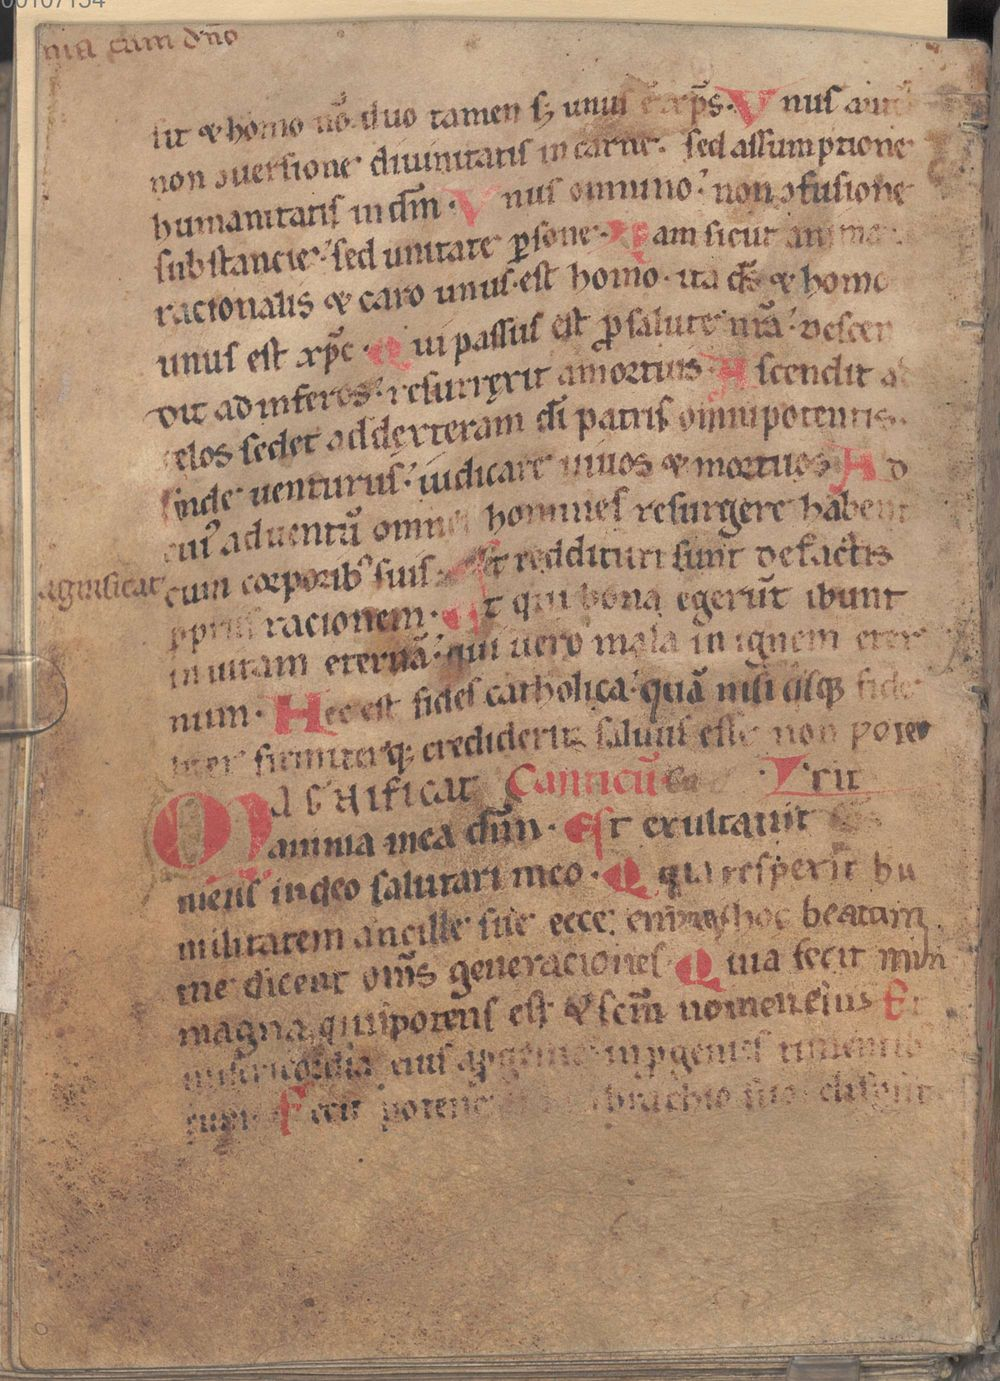 00107134
nia cum dn̄o
sit ⁊ homo nō duo tamen sꝫ unus ē xp̄s. Vnus aut
non ɔuersione diuinitatis in carne. sed assumptione
humanitatis in dm̄. Vnus omnino. non ɔfusione
substancie. sed unitate ꝑsone. Nam sicut anima
racionalis ⁊ caro unus est homo. ita ds̄ ⁊ homo
unus est xp̄c. Qui passus est ꝓ salute nr̄a. descen
dit ad inferos. resurrexit a mortuis. Ascendit ad
celos sedet ad dexteram di̅ patris omnipotentis.
inde uenturus. iudicare uiuos ⁊ mortuos. Ad
cuiꝰ aduentū omnes homines resurgere habent
aginificat
cum corporibꝰ suis. Et reddituri sunt de factis
ꝓpriis racionem. Et qui bona egerūt ibunt
in uitam eternā. qui uero mala in ignem eter
num. Hec est fides catholica. quā nisi qisqꝫ fide
liter firmiterqꝫ crediderit. saluus esse non poter
Magnificat Canticū . Erit
anima mea dn̄m. Est exultauit
meus in deo salutari meo. Q quia respexit hu
militatem ancille sue ecce. enim ex hoc beatam
me dicent om̄s generaciones. Quia fecit mihi
magna qui potens est ⁊ scm̄ nomen eius Et
misericordia eius a ꝓgenie in ꝓgenies timentib
eum. Fecit potenc brachio suo